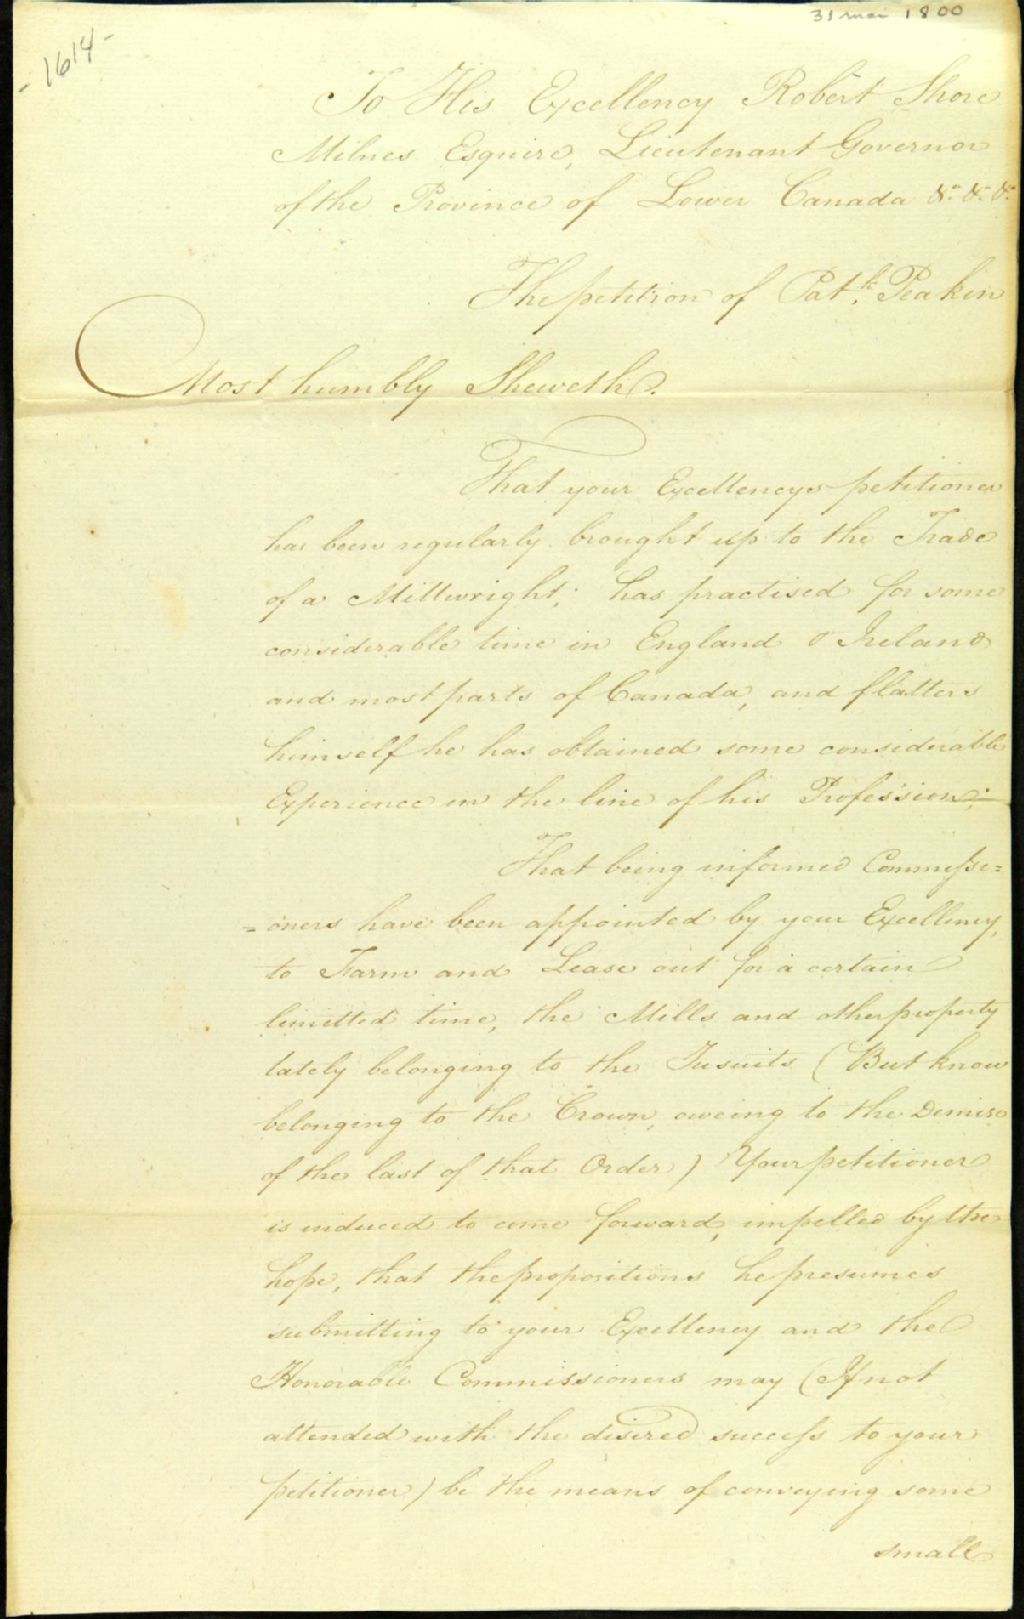 31 mai 1800
-1614-
To His Excellency Robert Shore
Milnes Esquire, Lieutenant Governor
of the Province of Lower Canada &c. &c. &c.
The petition of Patk. Peakin
Most humbly Sheweth.
That your Excellencys petitioner
has been regularly brought up to the Trade
of a Millwright; has practised for some
considerable time in England & Ireland
and most parts of Canada, and flatters
himself he has obtained some considerable
Experience in the line of his Profession;
That being informed Commissi=
=oners have been appointed by your Excellency,
to Farm and Lease out for a certain
limitted time, the Mills and other property
lately belonging to the Jusuits (But know
belonging to the Crown, oweing to the Demise
of the last of that Order) Your petitioner
is induced to come forward, impelled by the
hope, that the propositions he presumes
submitting to your Excellency and the
Honorable Commissioners may (If not
attended with the disired success to your
petitioner) be the means of conveying some
small